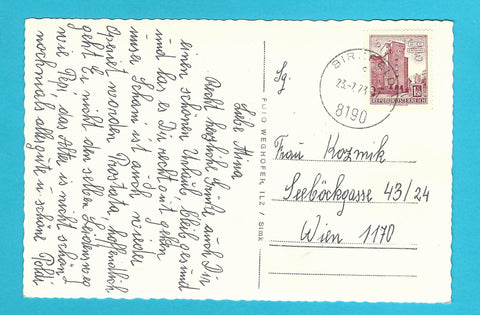 Liebe Mina,
Recht herzliche Grüße auch Dir
einen schönen Urlaub, bleib gesund
und laß es Dir recht gut gehen
unser Schani ist auch wieder
operiert worden Prostata, hoffentlich
geht Er nicht den selben Leidensweg
wie Pepi, das Alter is nicht schön
nochmals alles gute u. schöne
Poldi
FOTO WEGHOFER, ILZ / Stmk
Sg.
Frau Kozmik
Seeböckgasse 43/24
Wien 1170
8190
REPUBLIK ÖSTERREICH